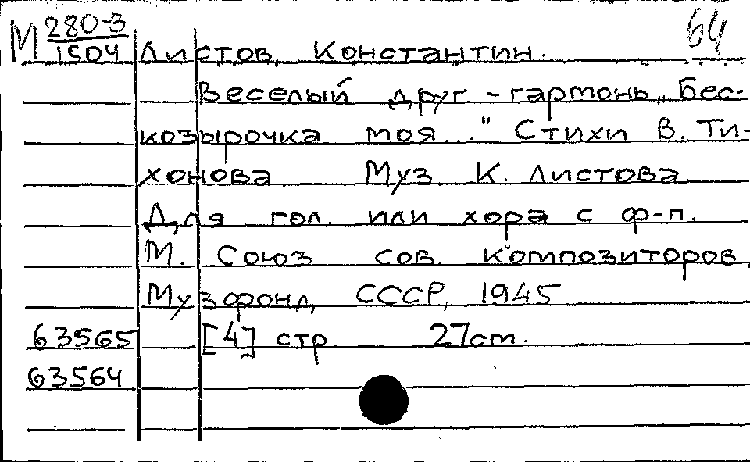 М 280-3 64
1504 Листов, Константин.
Веселый друг - гармонь „Бес-
козырочка моя..." Стихи В. Ти-
хонова Муз К. Листова
Для гол. или хора с ф-п.
М. Союз сов. композиторов,
Музфонд СССР, 1945
63565 [4] стр 27cm.
63564